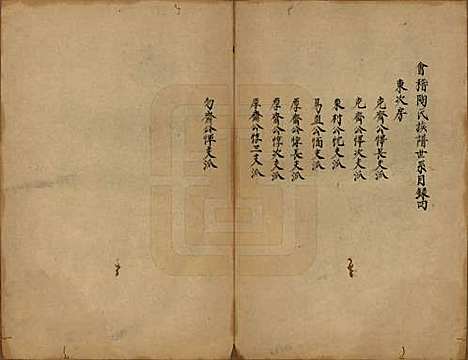 會稽陶氏族譜世系目錄丙
東次房
克齋公懌長支派
克齋公懌次支派
東村公忱支派
易直公恂支派
厚齋公惇長支派
厚齋公惇次支派
厚齋公惇三支派
勿齋公惲支派